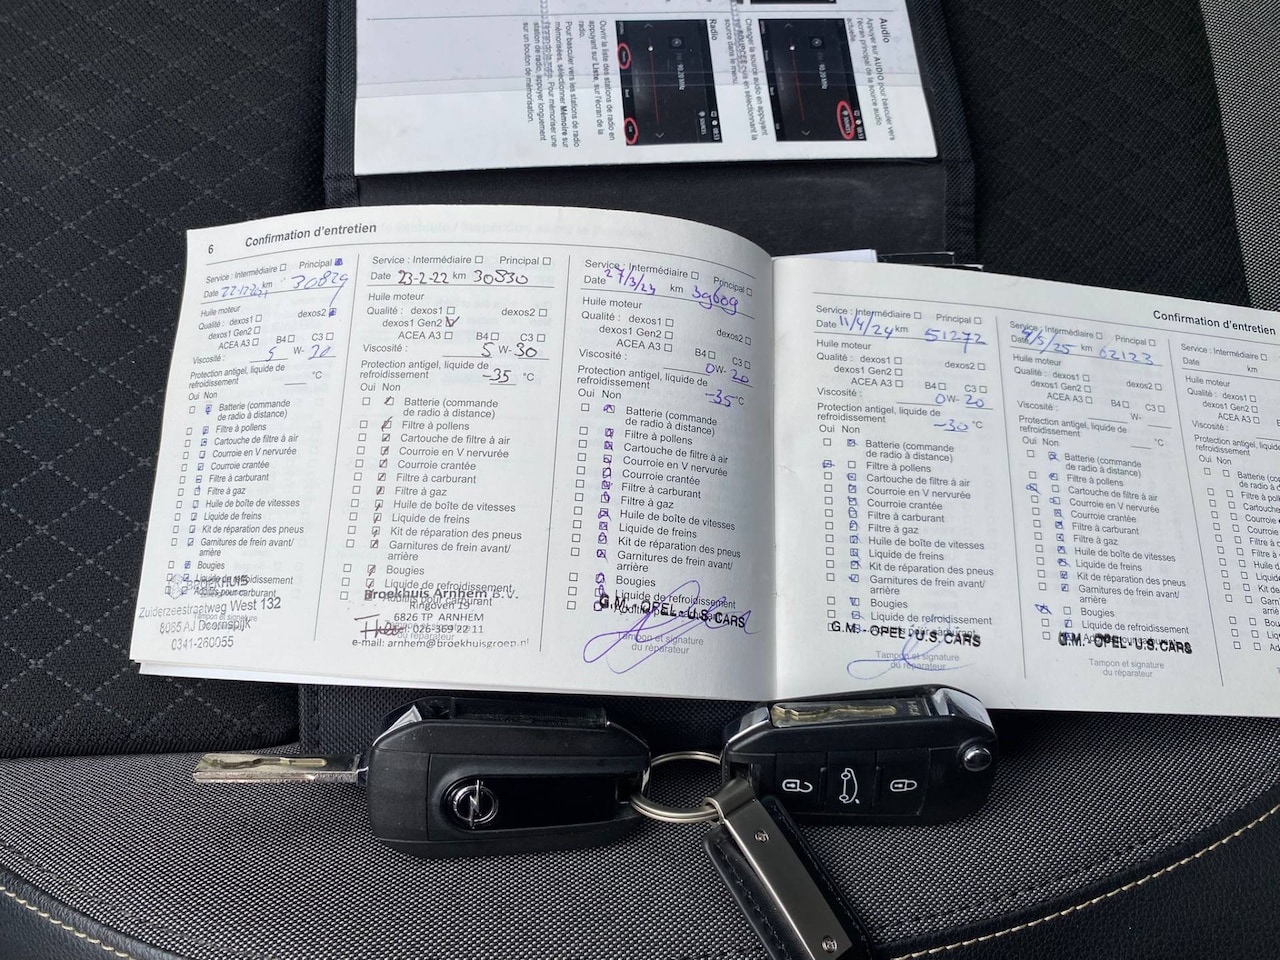 Audio
Appuyer sur AUDIO pour basculer vers
l'écran principal de la source audio
actuelle.
Changer la source audio en appuyant
sur SOURCES puis en sélectionnant la
source dans le menu.
Radio
Ouvrir la liste des stations de radio en
appuyant sur Liste, sur l'écran de la
radio.
Pour basculer vers les stations de radio
mémorisées, sélectionner Mémoire sur
l'écran de la radio. Pour mémoriser une
station de radio, appuyer longuement
sur un bouton de mémorisation.
6 Confirmation d'entretien
Service : Intermédiaire Principal
Date km 30829
Huile moteur
Qualité : dexos1 dexos2
dexos1 Gen2
ACEA A3 B4 C3
Viscosité : 5 W-
Protection antigel, liquide de
refroidissement °C
Oui Non
Batterie (commande
de radio à distance)
Filtre à pollens
Cartouche de filtre à air
Courroie en V nervurée
Courroie crantée
Filtre à carburant
Filtre à gaz
Huile de boîte de vitesses
Liquide de freins
Kit de réparation des pneus
Garnitures de frein avant/
arrière
Bougies
Liquide de refroidissement
BROEKHUIS
Zuiderzeestraatweg West 132
8085 AJ Doornspijk
Tampon et signature
du réparateur
0341-260055
Service : Intermédiaire Principal
Date 23-2-22 km 30830
Huile moteur
Qualité : dexos1 dexos2
dexos1 Gen2
ACEA A3 B4 C3
Viscosité : 5 W-30
Protection antigel, liquide de
refroidissement -35 °C
Oui Non
Batterie (commande
de radio à distance)
Filtre à pollens
Cartouche de filtre à air
Courroie en V nervurée
Courroie crantée
Filtre à carburant
Filtre à gaz
Huile de boîte de vitesses
Liquide de freins
Kit de réparation des pneus
Garnitures de frein avant/
arrière
Bougies
Liquide de refroidissement
Broekhuis Arnhem B.V.
Ringoven 19
6826 TP ARNHEM
026-369 22 11
e-mail: arnhem@broekhuisgroep.nl
Service : Intermédiaire Principal
Date km 39609
Huile moteur
Qualité : dexos1 dexos2
dexos1 Gen2
ACEA A3 B4 C3
Viscosité : 0W-20
Protection antigel, liquide de
refroidissement -35 °C
Oui Non
Batterie (commande
de radio à distance)
Filtre à pollens
Cartouche de filtre à air
Courroie en V nervurée
Courroie crantée
Filtre à carburant
Filtre à gaz
Huile de boîte de vitesses
Liquide de freins
Kit de réparation des pneus
Garnitures de frein avant/
arrière
Bougies
Liquide de refroidissement
G.M. - OPEL - U.S. CARS
Tampon et signature
du réparateur
Confirmation d'entretien
Service : Intermédiaire Principal
Date 11/4/24 km 51272
Huile moteur
Qualité : dexos1 dexos2
dexos1 Gen2
ACEA A3 B4 C3
Viscosité : 0W-20
Protection antigel, liquide de
refroidissement -30 °C
Oui Non
Batterie (commande
de radio à distance)
Filtre à pollens
Cartouche de filtre à air
Courroie en V nervurée
Courroie crantée
Filtre à carburant
Filtre à gaz
Huile de boîte de vitesses
Liquide de freins
Kit de réparation des pneus
Garnitures de frein avant/
arrière
Bougies
Liquide de refroidissement
G.M. - OPEL - U.S. CARS
Tampon et signature
du réparateur
Service : Intermédiaire Principal
Date /5/25 km 62123
Huile moteur
Qualité : dexos1 dexos2
dexos1 Gen2
ACEA A3 B4 C3
Viscosité : W-
Protection antigel, liquide de
refroidissement °C
Oui Non
Batterie (commande
de radio à distance)
Filtre à pollens
Cartouche de filtre à air
Courroie en V nervurée
Courroie crantée
Filtre à carburant
Filtre à gaz
Huile de boîte de vitesses
Liquide de freins
Kit de réparation des pneus
Garnitures de frein avant/
arrière
Bougies
Liquide de refroidissement
G.M. - OPEL - U.S. CARS
Tampon et signature
du réparateur
Service : Intermédiaire
Date km
Huile moteur
Qualité : dexos1
dexos1 Gen2
ACEA A3
Viscosité :
Protection antigel,
refroidissement
Oui Non